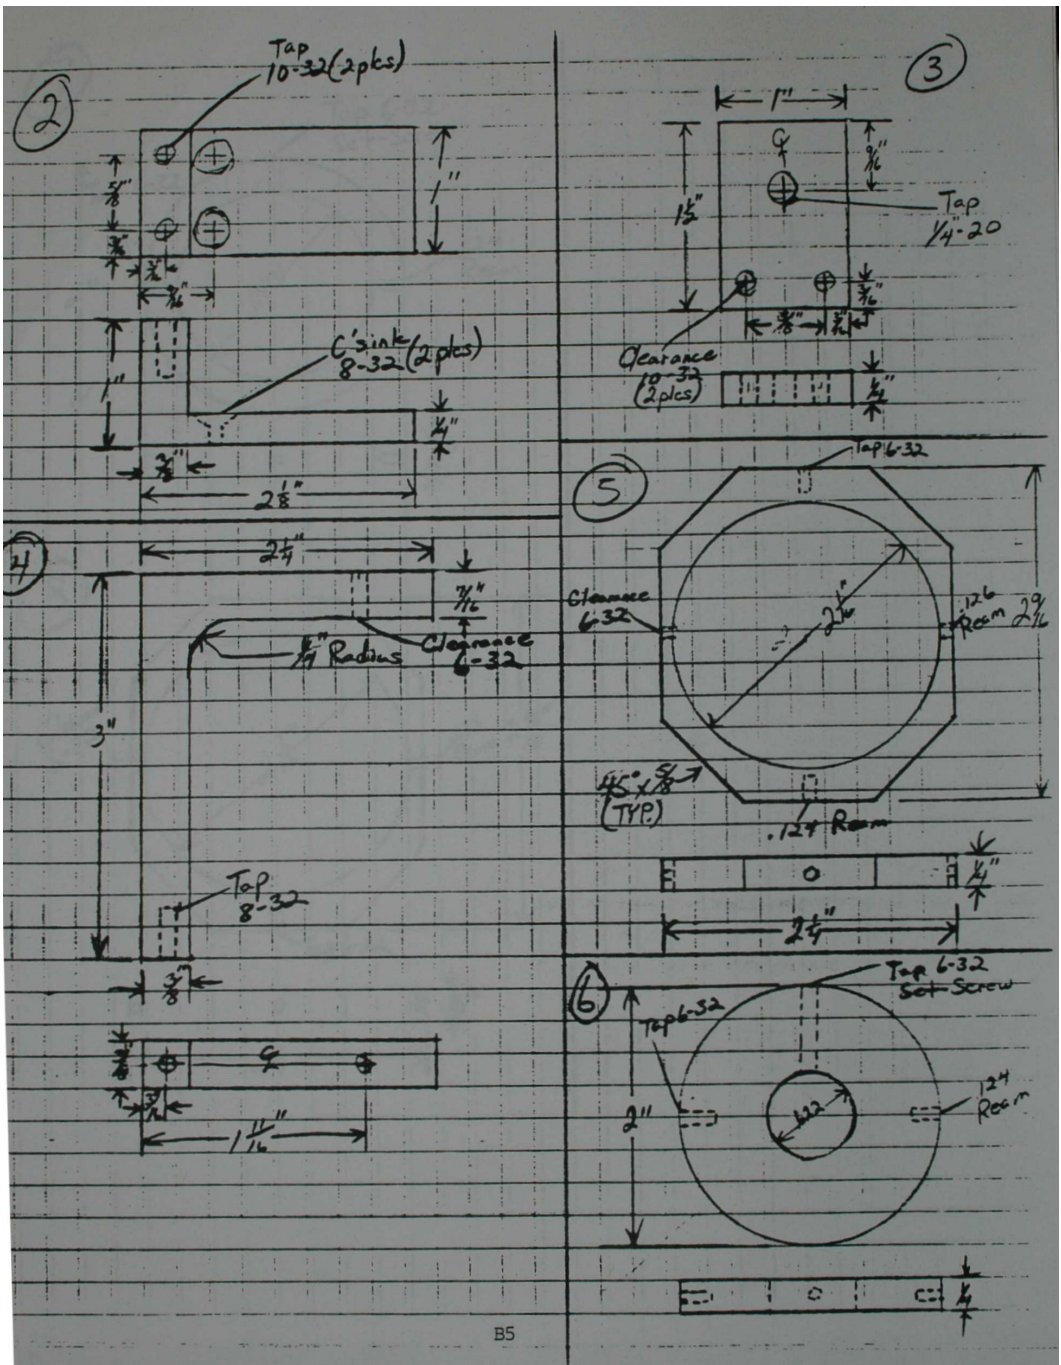 2
Tap
10-32 (2 plcs)
5/8"
3/16"
3/16"
9/16"
1"
1"
C'sink
8-32 (2 plcs)
1/4"
3/8"
2 1/8"
3
1"
1 1/2"
℄
9/16"
Tap
1/4"-20
3/16"
5/8"
3/16"
Clearance
10-32
(2 plcs)
1/4"
4
2 1/4"
3"
1/4" Radius
Clearance
6-32
Tap
8-32
3/8"
3/8"
℄
3/16"
1 11/16"
5
Tap 6-32
Clearance
6-32
2 1/16"
.126
Ream
2 9/16
45° x 5/8
(TYP.)
.124 Ream
1/4"
2 1/4"
6
Tap 6-32
Set Screw
Tap 6-32
2"
.622
.124
Ream
1/4
B5